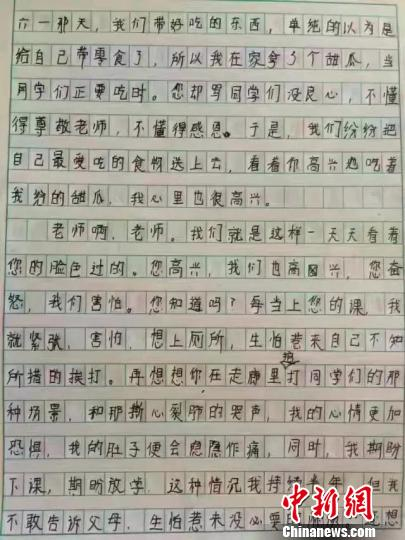 六一那天，我们带好吃的东西，单纯的以为是
给自己带零食了，所以我在家拿了个甜瓜，当
同学们正要吃时。您却骂同学们没良心，不懂
得尊敬老师，不懂得感恩。于是，我们纷纷把
自己最爱吃的食物送上去，看着你高兴地吃着
我给的甜瓜，我心里也很高兴。
老师啊，老师。我们就是这样一天天看着
您的脸色过的。您高兴，我们也高兴，您奋
怒，我们害怕。您知道吗？每当上您的课，我
就紧张，害怕，想上厕所，生怕惹来自己不知
所措的挨打。再想想你在走廊里抽打同学们的那
种场景，和那撕心裂肺的哭声，我的心情更加
恐惧，我的肚子便会隐隐作痛，同时，我期盼
下课，期盼放学，这种情况我持续半年，但我
不敢告诉父母，生怕惹来没必要 想
中新网
.com